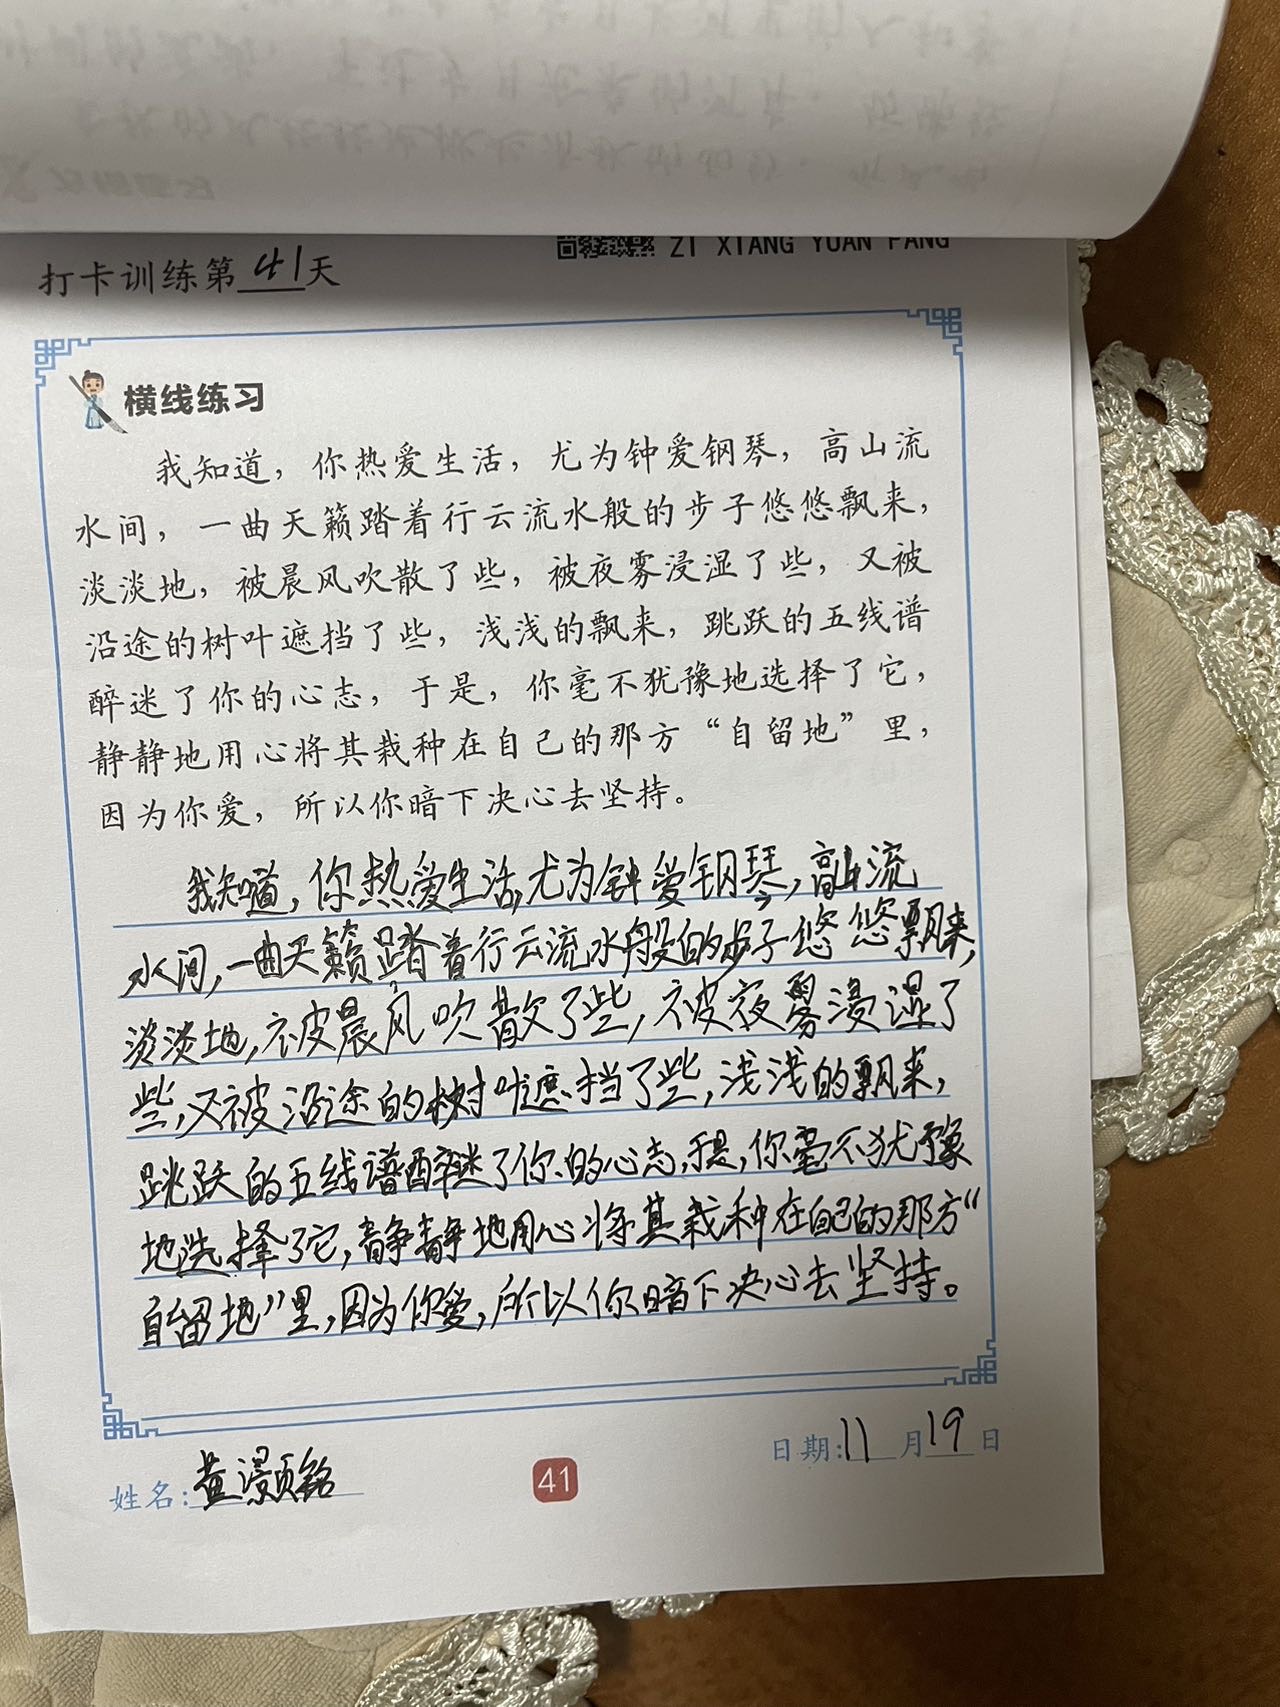 ZI XIANG YUAN FANG
打卡训练第41天
横线练习
我知道，你热爱生活，尤为钟爱钢琴，高山流
水间，一曲天籁踏着行云流水般的步子悠悠飘来，
淡淡地，被晨风吹散了些，被夜雾浸湿了些，又被
沿途的树叶遮挡了些，浅浅的飘来，跳跃的五线谱
醉迷了你的心志，于是，你毫不犹豫地选择了它，
静静地用心将其栽种在自己的那方“自留地”里，
因为你爱，所以你暗下决心去坚持。
我知道，你热爱生活，尤为钟爱钢琴，高山流
水间，一曲天籁踏着行云流水般的步子悠悠飘来，
淡淡地，被晨风吹散了些，被夜雾浸湿了
些，又被沿途的树叶遮挡了些，浅浅的飘来，
跳跃的五线谱醉迷了你的心志，于是，你毫不犹豫
地选择了它，静静地用心将其栽种在自己的那方“
自留地”里，因为你爱，所以你暗下决心去坚持。
日期：11月19日
姓名：黄灏铭
41